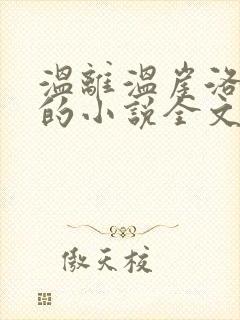 温離温崖洛
的小説全文
傲天校